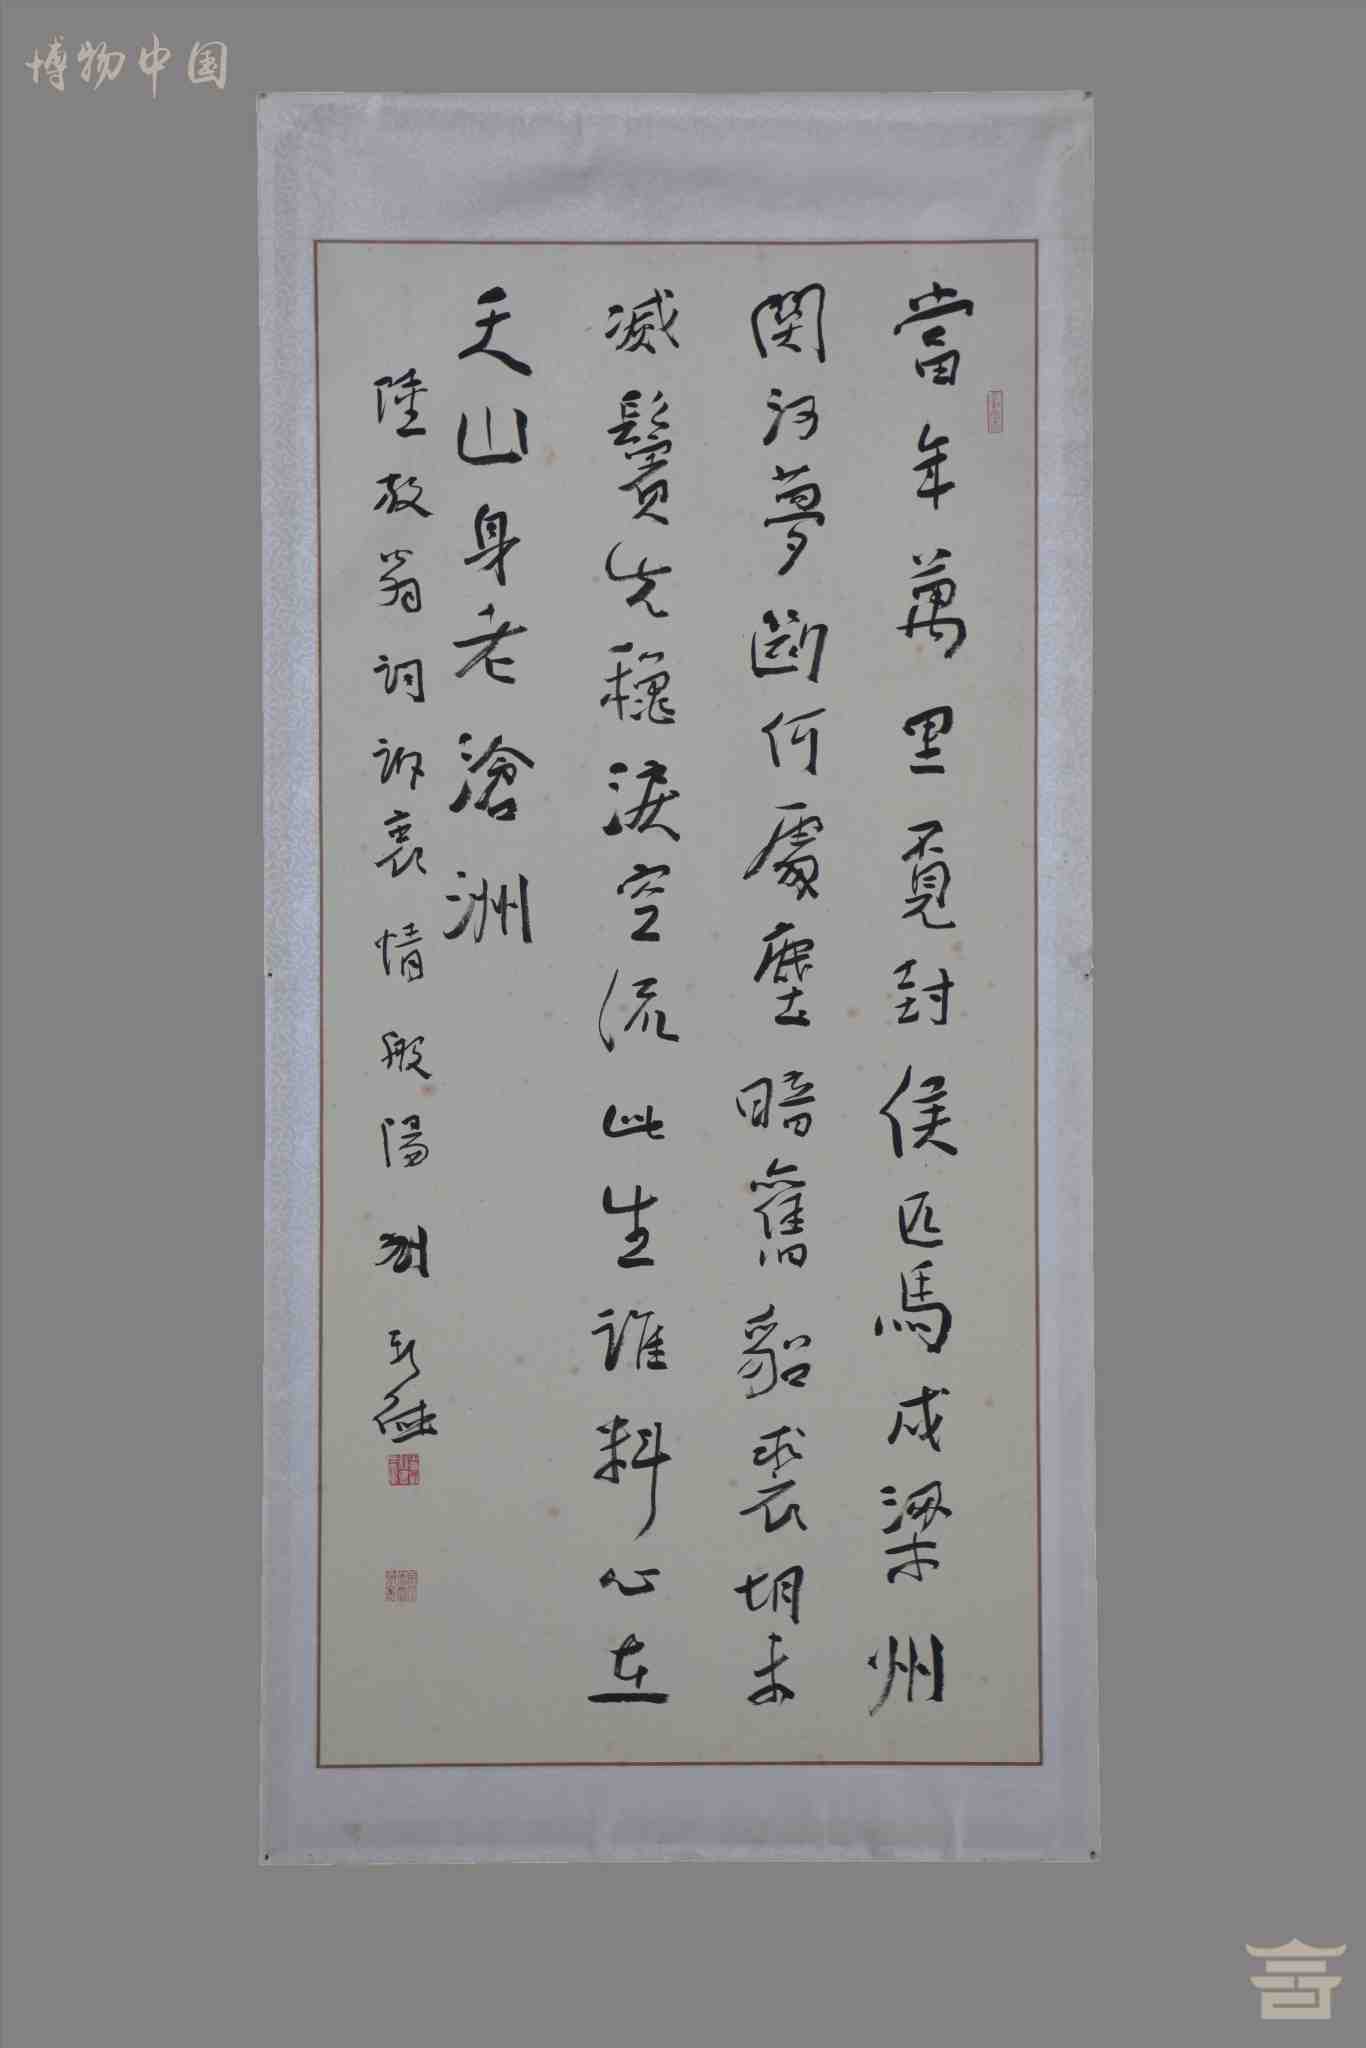 博物中国
當年萬里覓封侯匹馬戍梁州
關河夢斷何處塵暗舊貂裘胡未
滅鬢先穐淚空流此生誰料心在
天山身老滄洲
陸放翁詞訴衷情 般陽